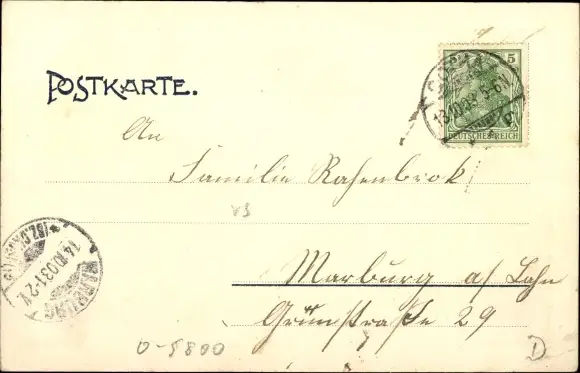 POSTKARTE.
5
DEUTSCHES REICH
13.10.03. 5-6N
An
Familie Rasenbrok
Marburg a/Lahn
Grünstraße 29
MARBURG
14.10.03.1-2V.
0-5800
D